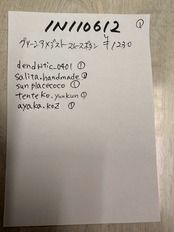 1N110612 ①
グリーンアメジスト スムースボタン ¥1230
dendritic_0401 ①
salita.handmade ②
sun placecoco ①
tenteko.yunkun ①
ayaka.koz ①